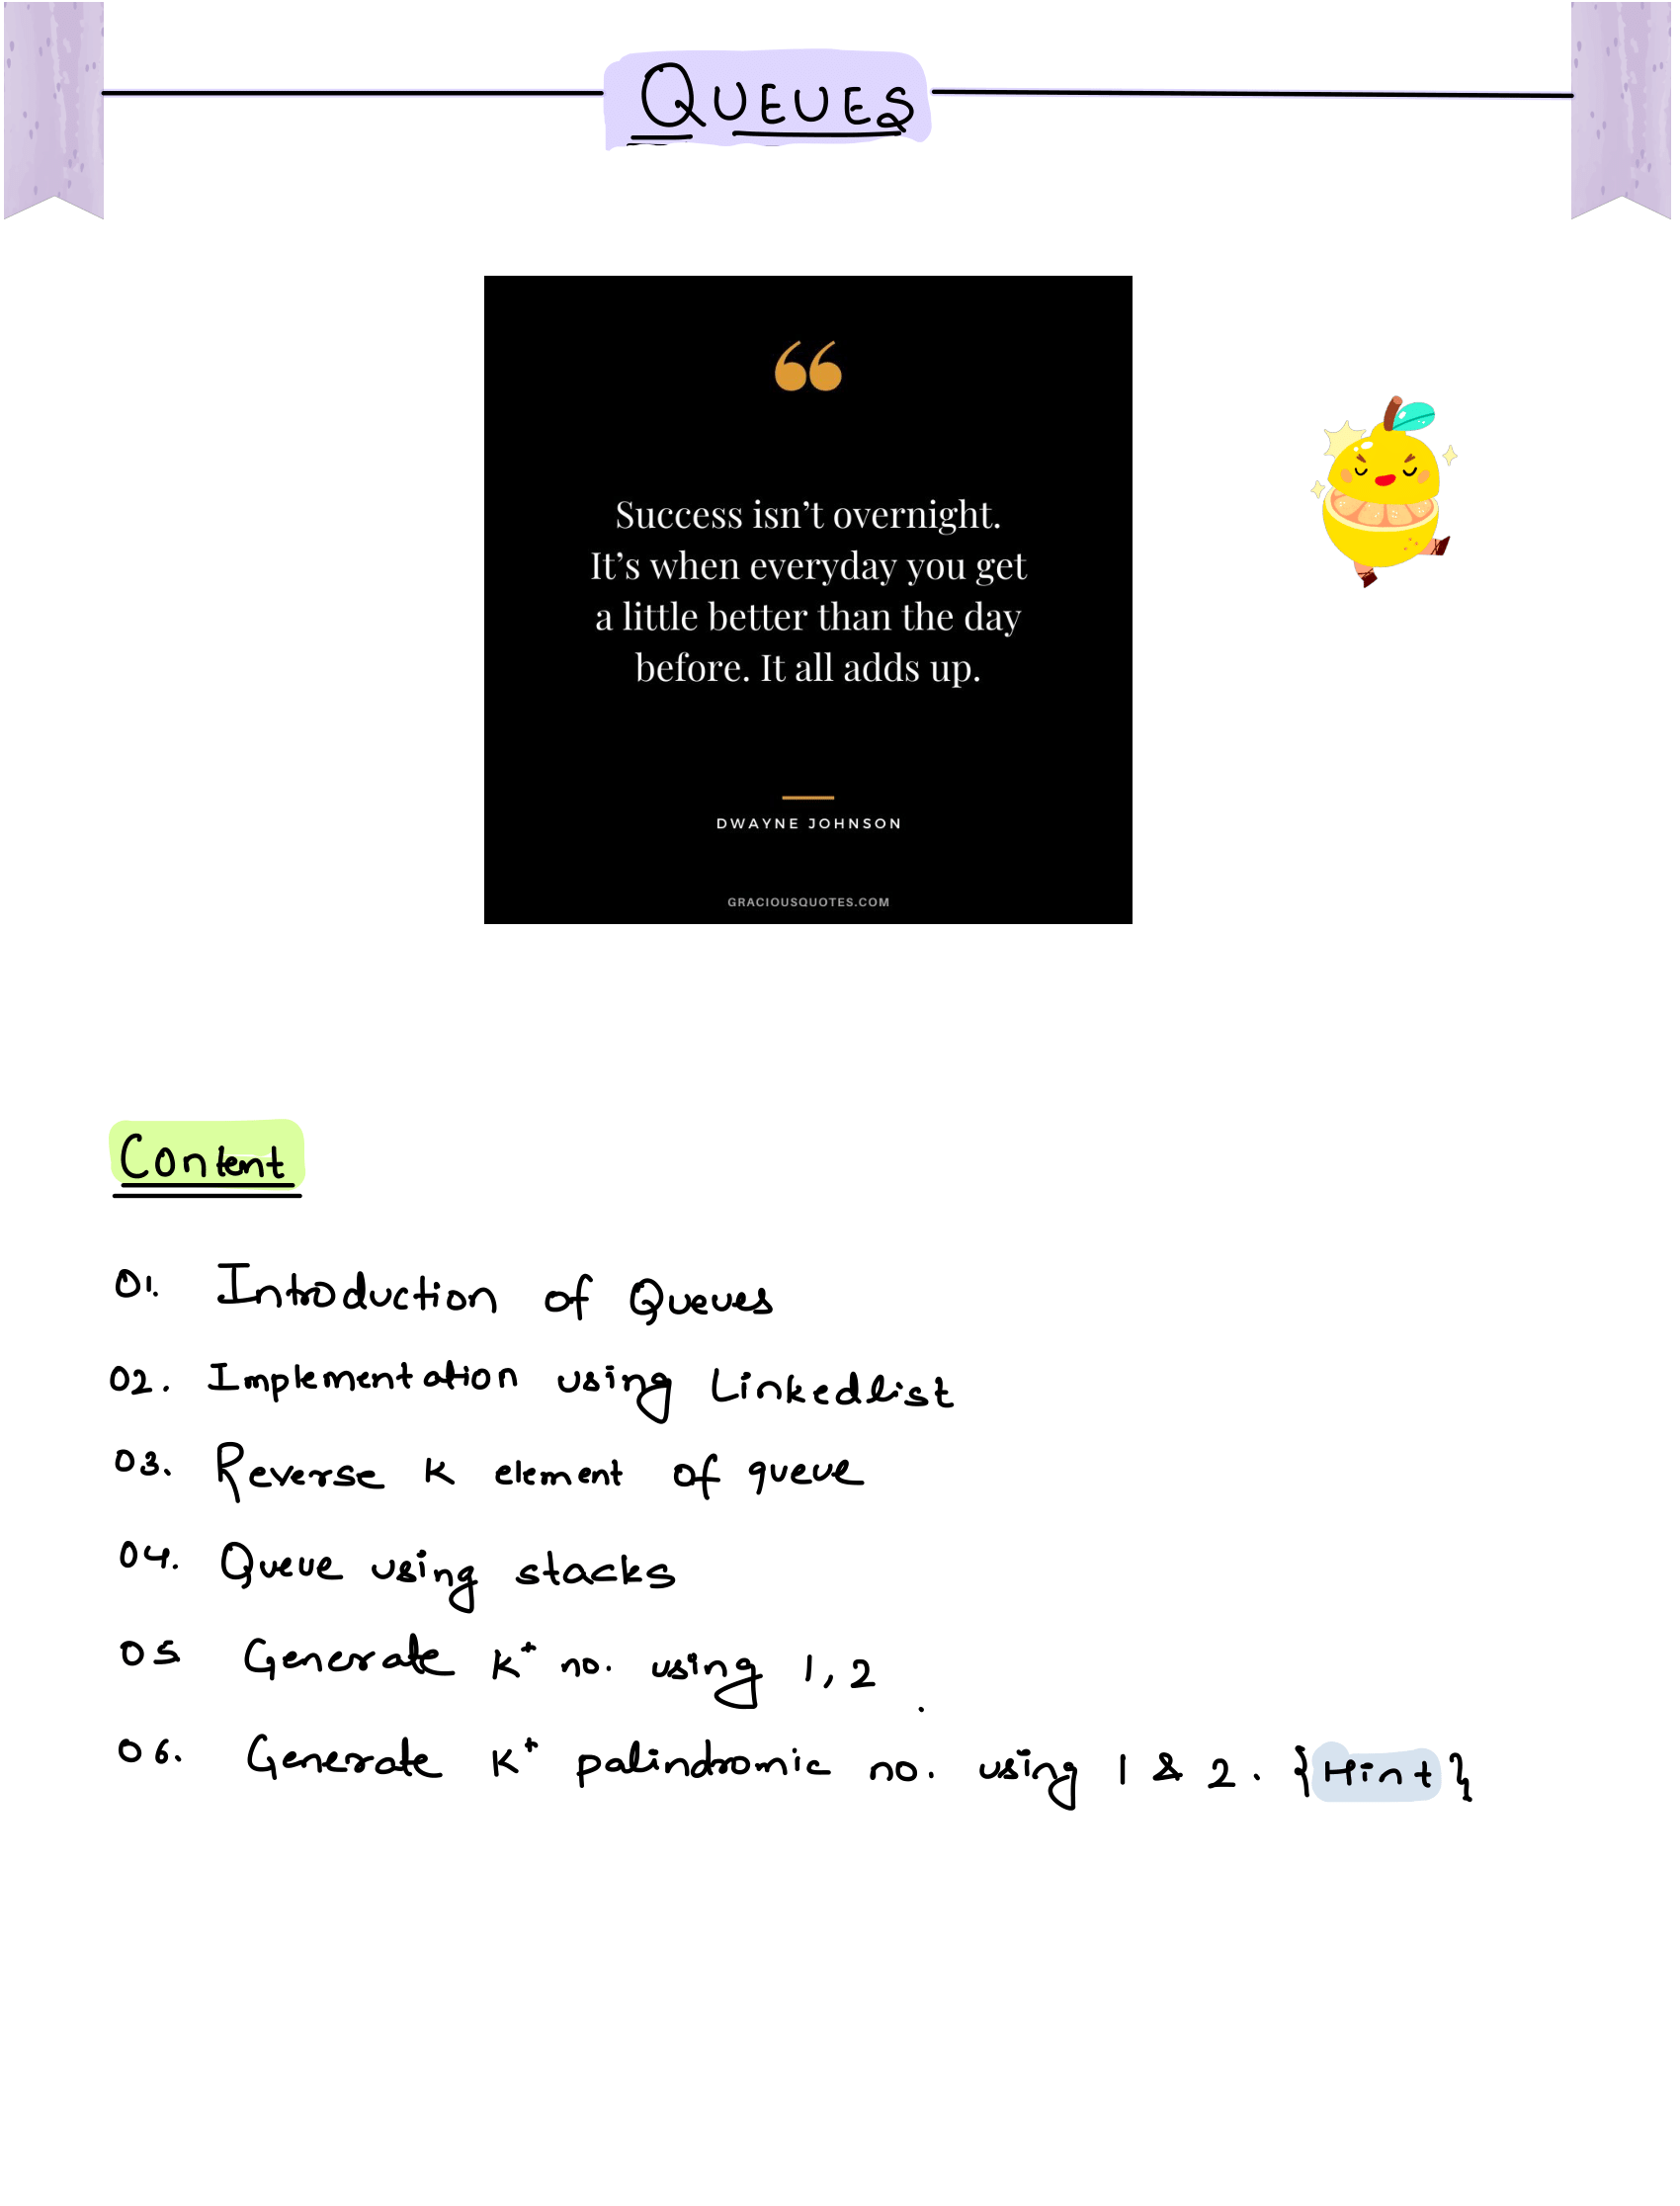 QUEUES
“
Success isn’t overnight.
It’s when everyday you get
a little better than the day
before. It all adds up.
DWAYNE JOHNSON
GRACIOUSQUOTES.COM
Content
01. Introduction of Queues
02. Implementation using Linkedlist
03. Reverse K element of queue
04. Queue using stacks
05 Generate K+ no. using 1, 2 .
06. Generate K+ palindromic no. using 1 & 2. {Hint}